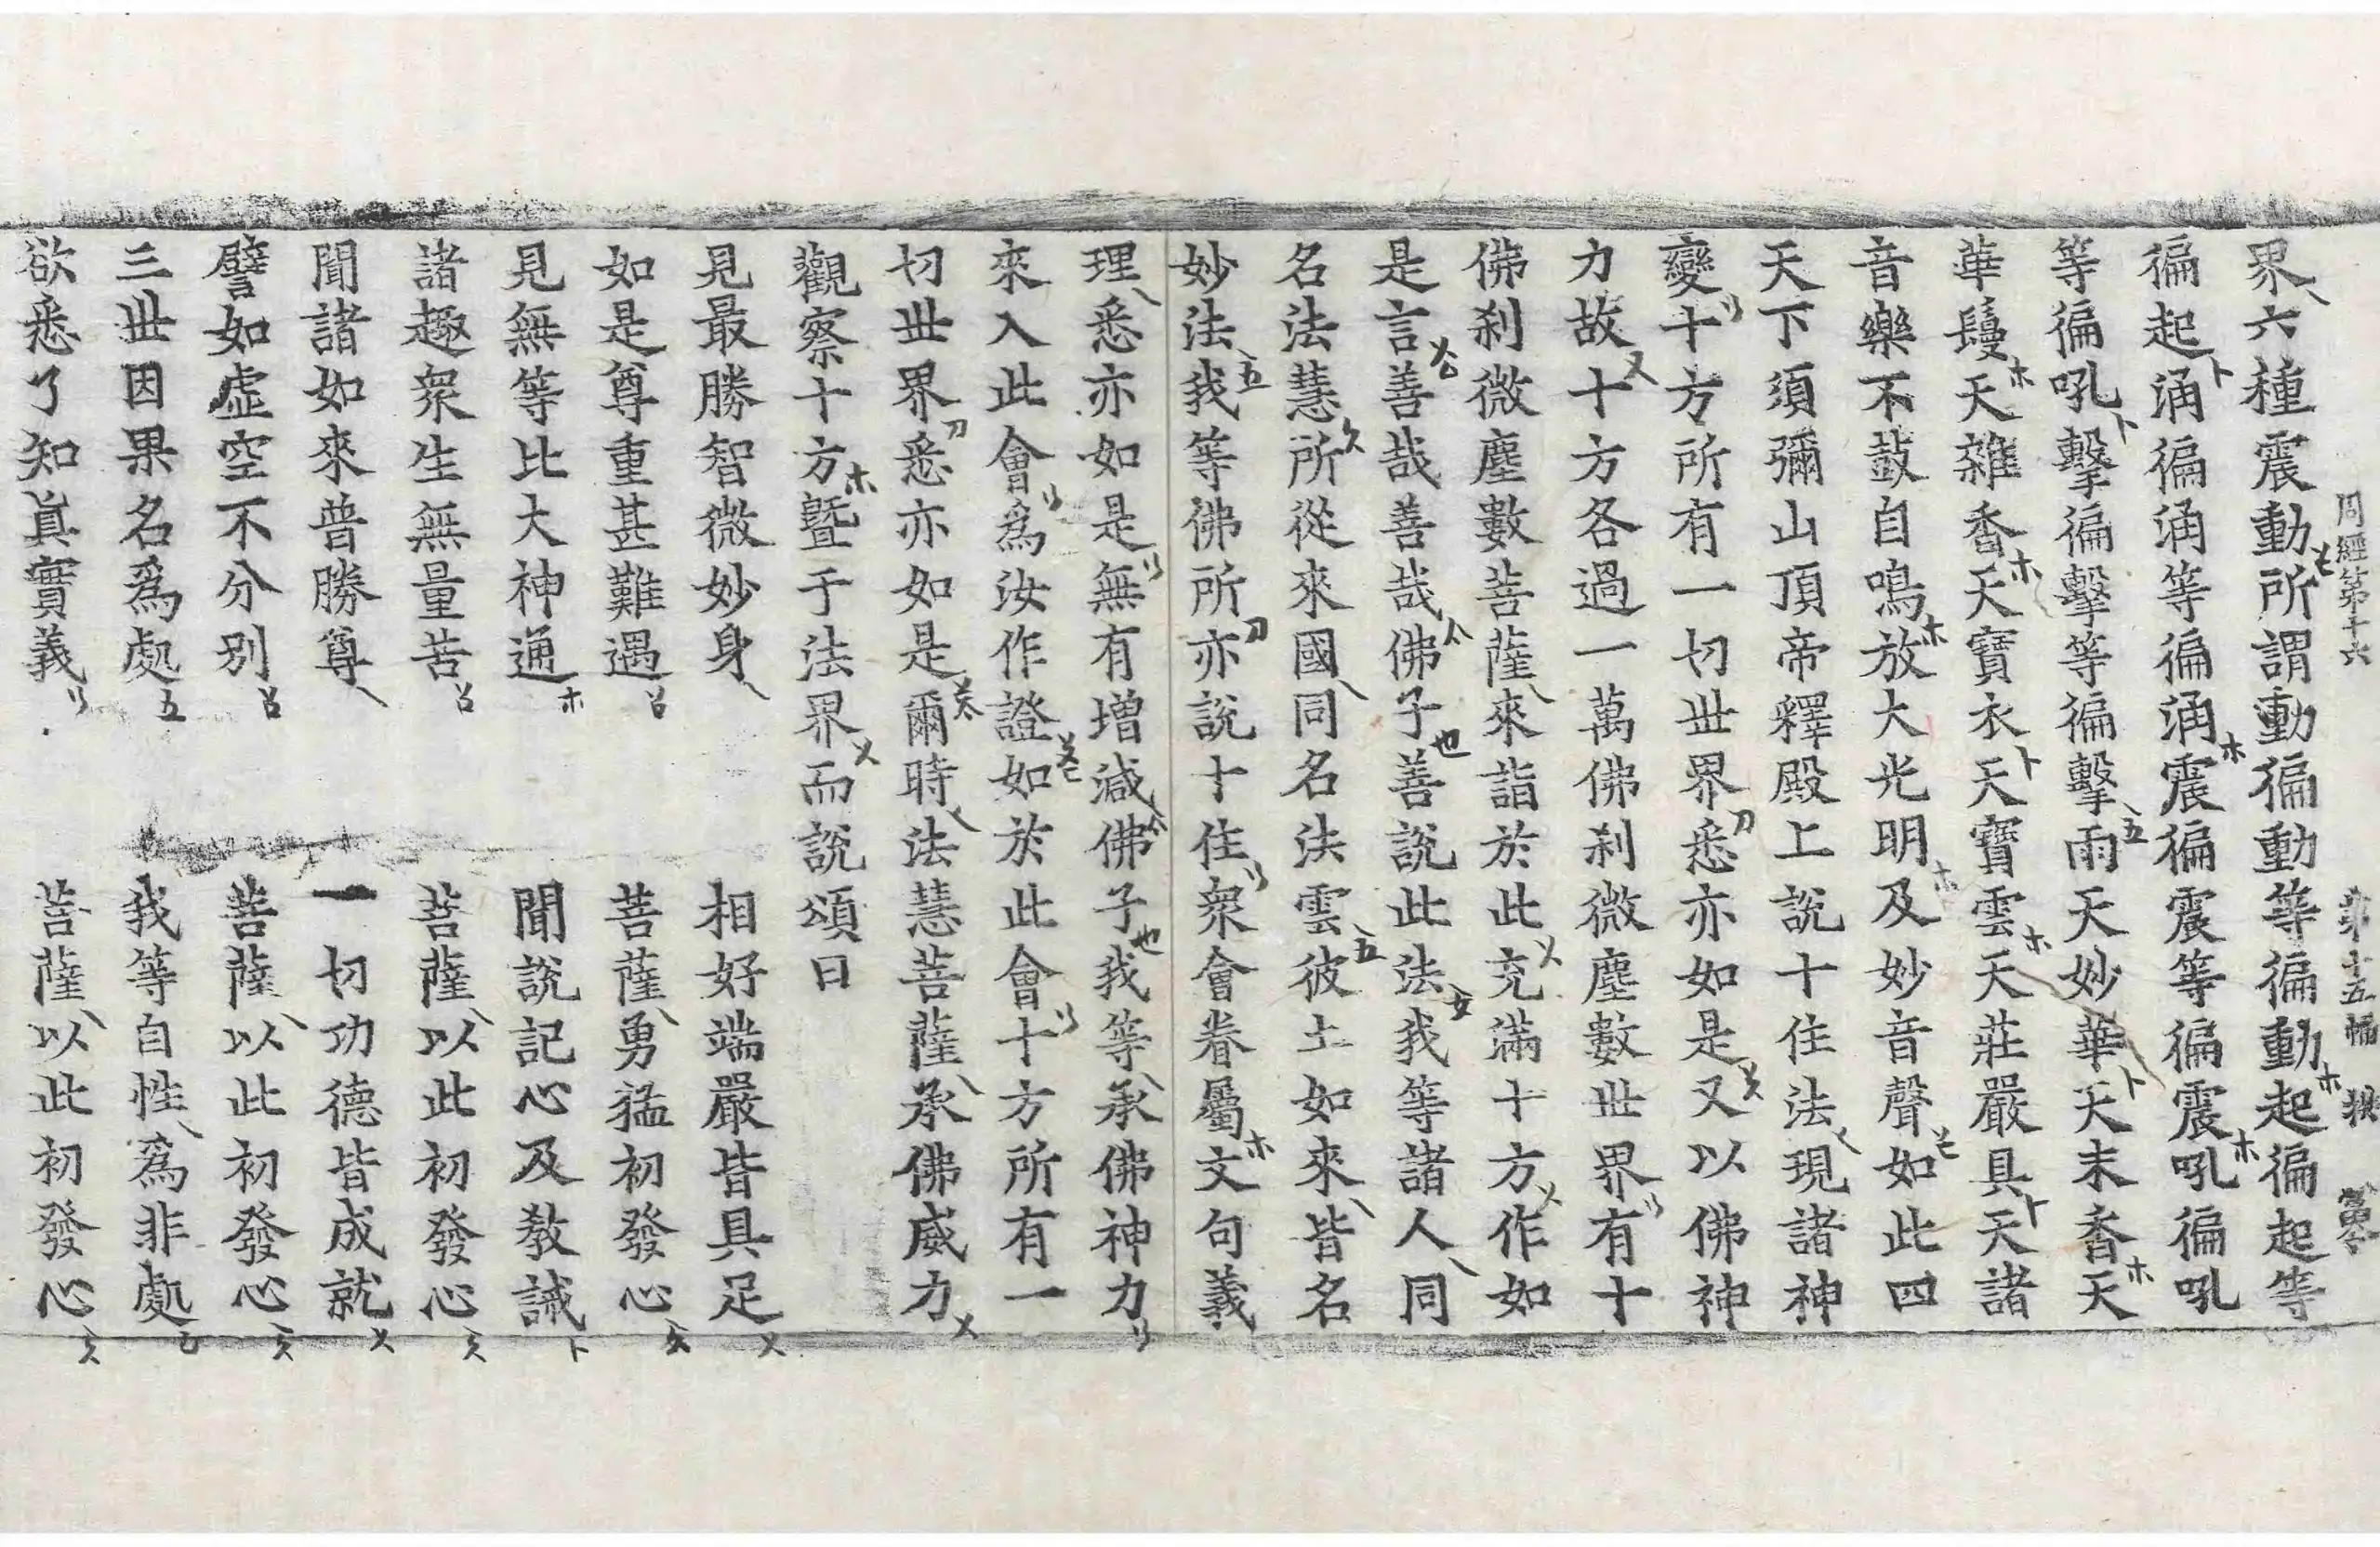 周經第十六 第十五幅
界六種震動所謂動徧動等徧動起徧起等
徧起涌徧涌等徧涌震徧震等徧震吼徧吼
等徧吼擊徧擊等徧擊雨天妙華天末香天
華鬘天雜香天寶衣天寶雲天莊嚴具天諸
音樂不鼓自鳴放大光明及妙音聲如此四
天下須彌山頂帝釋殿上說十住法現諸神
變十方所有一切世界悉亦如是又以佛神
力故十方各過一萬佛刹微塵數世界有十
佛刹微塵數菩薩來詣於此充滿十方作如
是言善哉善哉佛子善說此法我等諸人同
名法慧所從來國同名法雲彼土如來皆名
妙法我等佛所亦說十住衆會眷屬文句義
理悉亦如是無有增減佛子我等承佛神力
來入此會爲汝作證如於此會十方所有一
切世界悉亦如是爾時法慧菩薩承佛威力
觀察十方曁于法界而說頌曰
見最勝智微妙身 相好端嚴皆具足
如是尊重甚難遇 菩薩勇猛初發心
見無等比大神通 聞說記心及敎誡
諸趣衆生無量苦 菩薩以此初發心
聞諸如來普勝尊 一切功德皆成就
譬如虛空不分別 菩薩以此初發心
三世因果名爲處 我等自性爲非處
欲悉了知眞實義 菩薩以此初發心